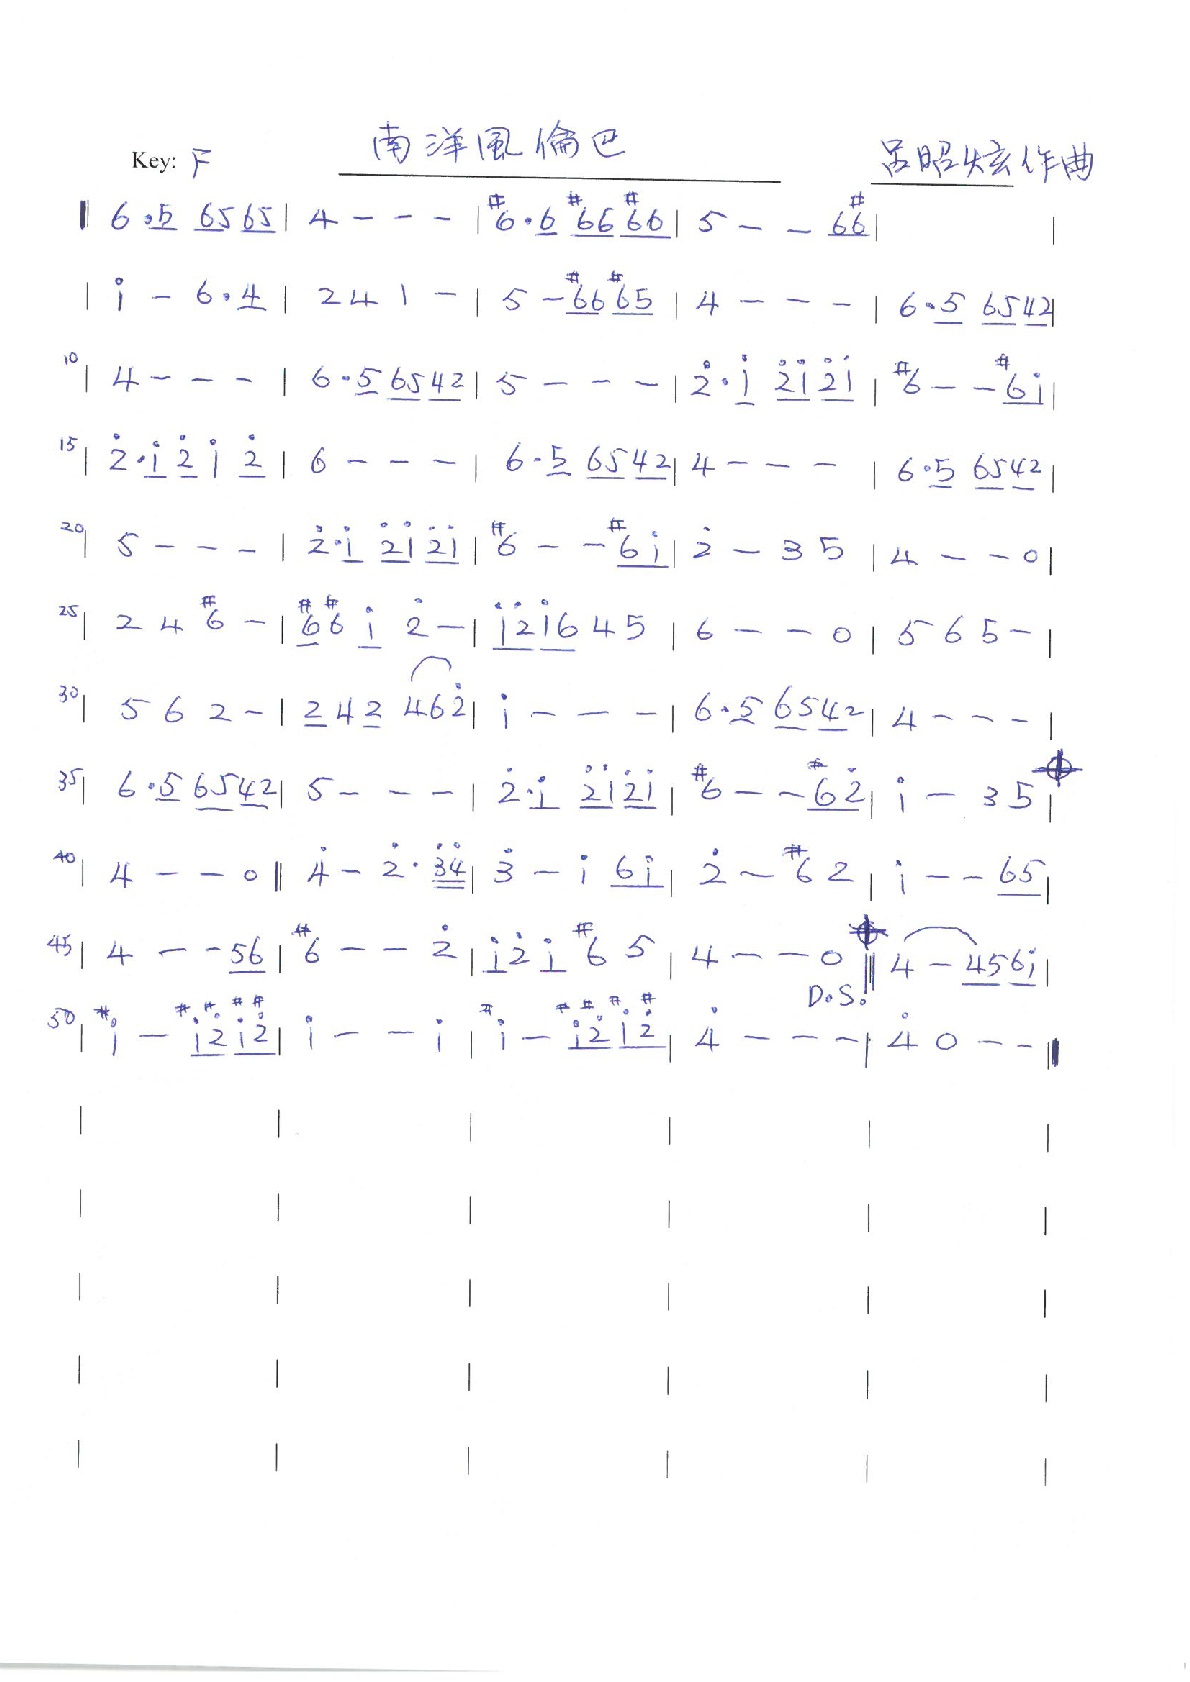 Key: F 南洋風倫巴 呂昭炫作曲
‖ 6·5 6565 | 4 - - - | #6·6 #66 #66 | 5 - - 6#6 | |
| i̇ - 6·4 | 2 4 1 - | 5 - #66 #65 | 4 - - - | 6·5 6542 |
10 | 4 - - - | 6·5 6542 | 5 - - - | 2̇·i̇ 2̇i̇ 2̇i̇ | #6 - - #6i̇ |
15 | 2̇·i̇ 2̇ i̇ 2̇ | 6 - - - | 6·5 6542 | 4 - - - | 6·5 6542 |
20 | 5 - - - | 2̇·i̇ 2̇i̇ 2̇i̇ | #6 - - #6 i̇ | 2̇ - 3 5 | 4 - - 0 |
25 | 2 4 #6 - | #6 #6 i̇ 2̇ - | i̇ 2̇ i̇ 6 4 5 | 6 - - 0 | 5 6 5 - |
30 | 5 6 2 - | 2 4 2 4 6 2̇ | i̇ - - - | 6·5 6542 | 4 - - - |
35 | 6·5 6542 | 5 - - - | 2̇·i̇ 2̇i̇ 2̇i̇ | #6 - - #6 2̇ | i̇ - 3 5 |
40 | 4 - - 0 ‖ 4̇ - 2̇· 3̇4̇ | 3̇ - i̇ 6i̇ | 2̇ - #6 2 | i̇ - - 65 |
45 | 4 - - 56 | #6 - - 2̇ | i̇ 2̇ i̇ #6 5 | 4 - - 0 ‖ 4 - 456i̇ |
D.S.
50 | #i̇ - #i̇#2̇#i̇#2̇ | i̇ - - i̇ | #i̇ - #i̇#2̇#i̇#2̇ | 4̇ - - - | 4̇ 0 - - ‖